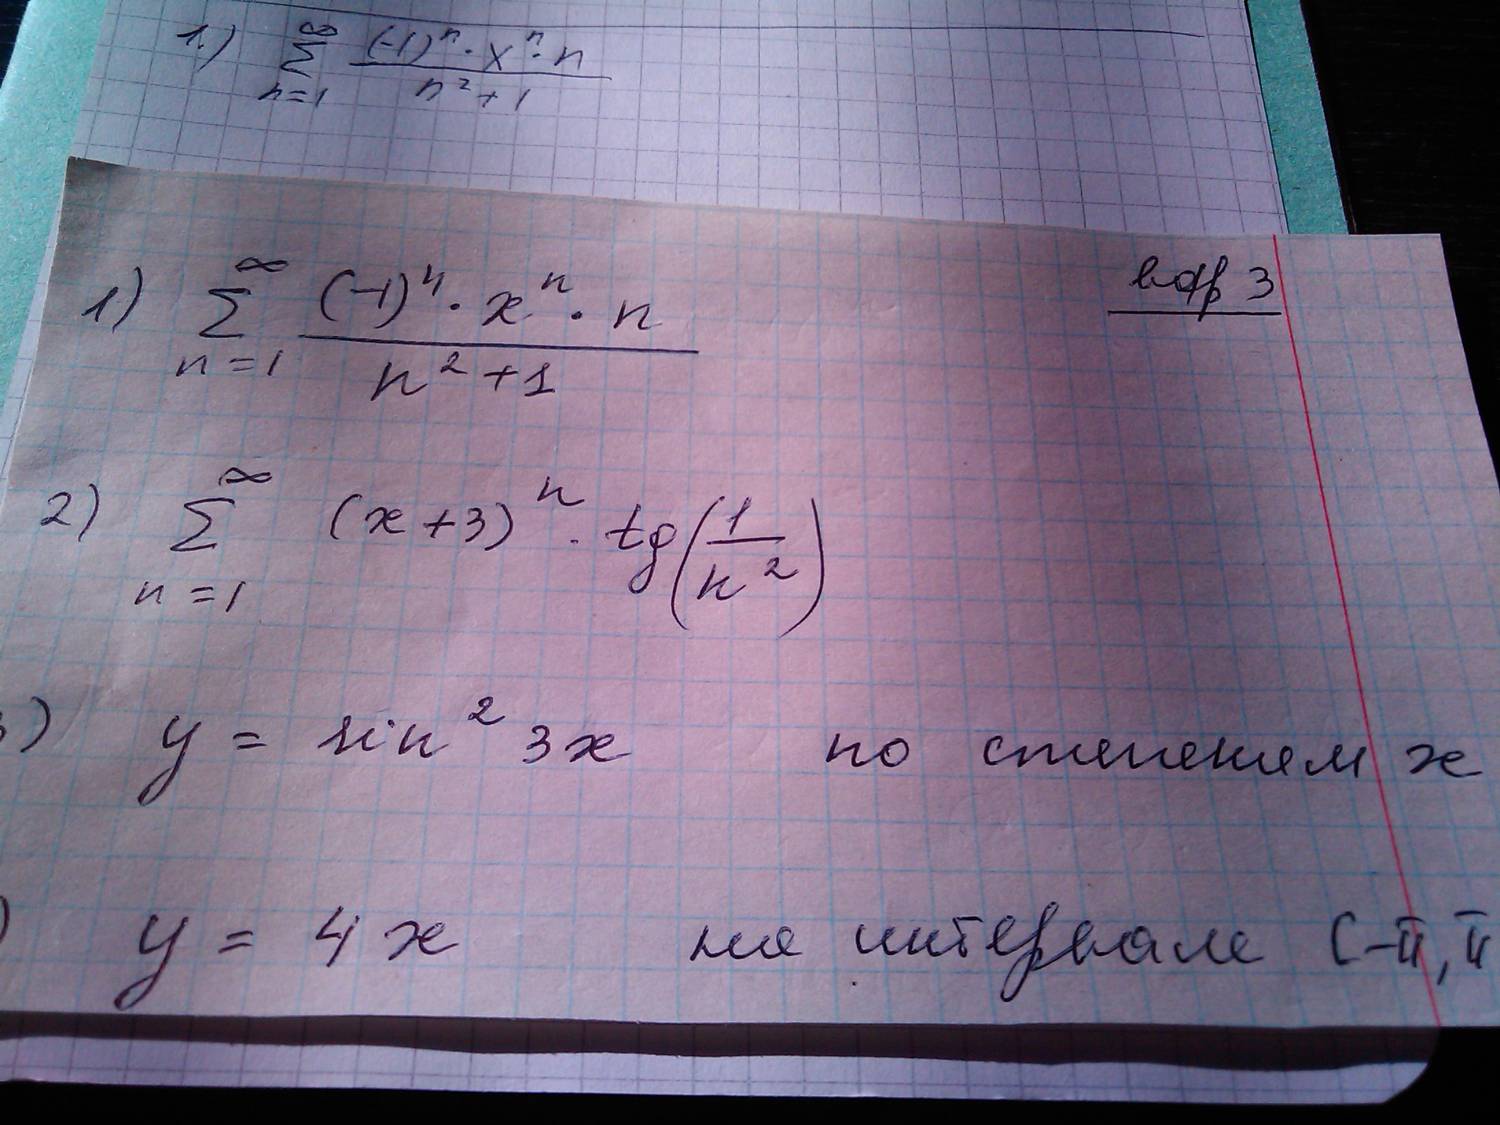 1.) ∞ Σ n=1 (-1)ⁿ · xⁿ · n / n² + 1
вар 3
1) ∞ Σ n=1 (-1)ⁿ · xⁿ · n / n² + 1
2) ∞ Σ n=1 (x+3)ⁿ · tg(1/n²)
3) y = sin² 3x по степеням x
) y = 4x на интервале [-π, π